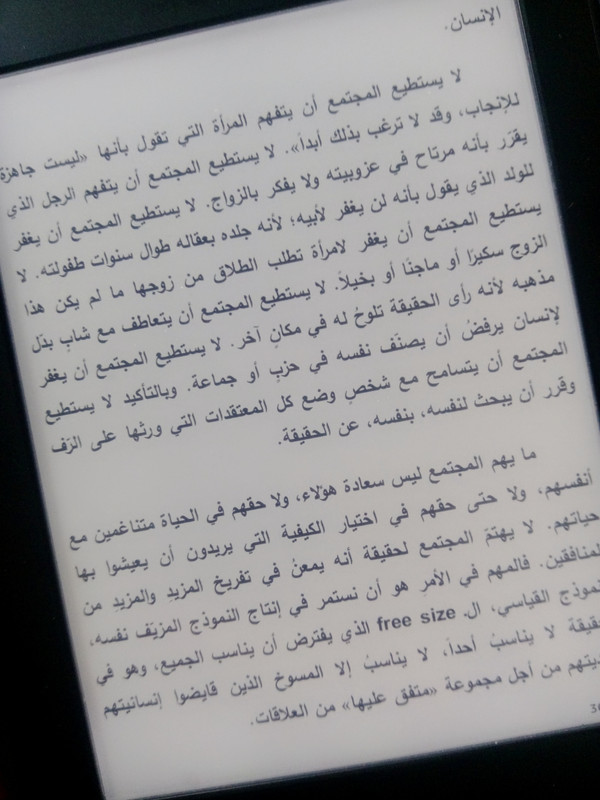 الإنسان.
لا يستطيع المجتمع أن يتفهم المرأة التي تقول بأنها «ليست جاهزة
للإنجاب، وقد لا ترغب بذلك أبداً». لا يستطيع المجتمع أن يتفهم الرجل الذي
يقرّر بأنه مرتاح في عزوبيته ولا يفكر بالزواج. لا يستطيع المجتمع أن يغفر
للولد الذي يقول بأنه لن يغفر لأبيه؛ لأنه جلده بعقاله طوال سنوات طفولته. لا
يستطيع المجتمع أن يغفر لامرأة تطلب الطلاق من زوجها ما لم يكن هذا
الزوج سكيرًا أو ماجنًا أو بخيلاً. لا يستطيع المجتمع أن يتعاطف مع شابٍ بدّل
مذهبه لأنه رأى الحقيقة تلوحُ له في مكانٍ آخر. لا يستطيع المجتمع أن يغفر
لإنسان يرفضُ أن يصنّف نفسه في حزبٍ أو جماعة. وبالتأكيد لا يستطيع
المجتمع أن يتسامح مع شخصٍ وضع كل المعتقدات التي ورثها على الرّف
وقرر أن يبحث لنفسه، بنفسه، عن الحقيقة.
ما يهم المجتمع ليس سعادة هؤلاء، ولا حقهم في الحياة متناغمين مع
أنفسهم، ولا حتى حقهم في اختيار الكيفية التي يريدون أن يعيشوا بها
حياتهم. لا يهتمّ المجتمع لحقيقة أنه يمعنُ في تفريخ المزيدِ والمزيدِ من
المنافقين. فالمهم في الأمرِ هو أن نستمر في إنتاج النموذج المزيّف نفسه،
نموذج القياسي، الـ free size الذي يفترض أن يناسب الجميع، وهو في
حقيقة لا يناسبُ أحداً، لا يناسبُ إلا المسوخ الذين قايضوا إنسانيتهم
من أجل مجموعة «متفق عليها» من العلاقات.